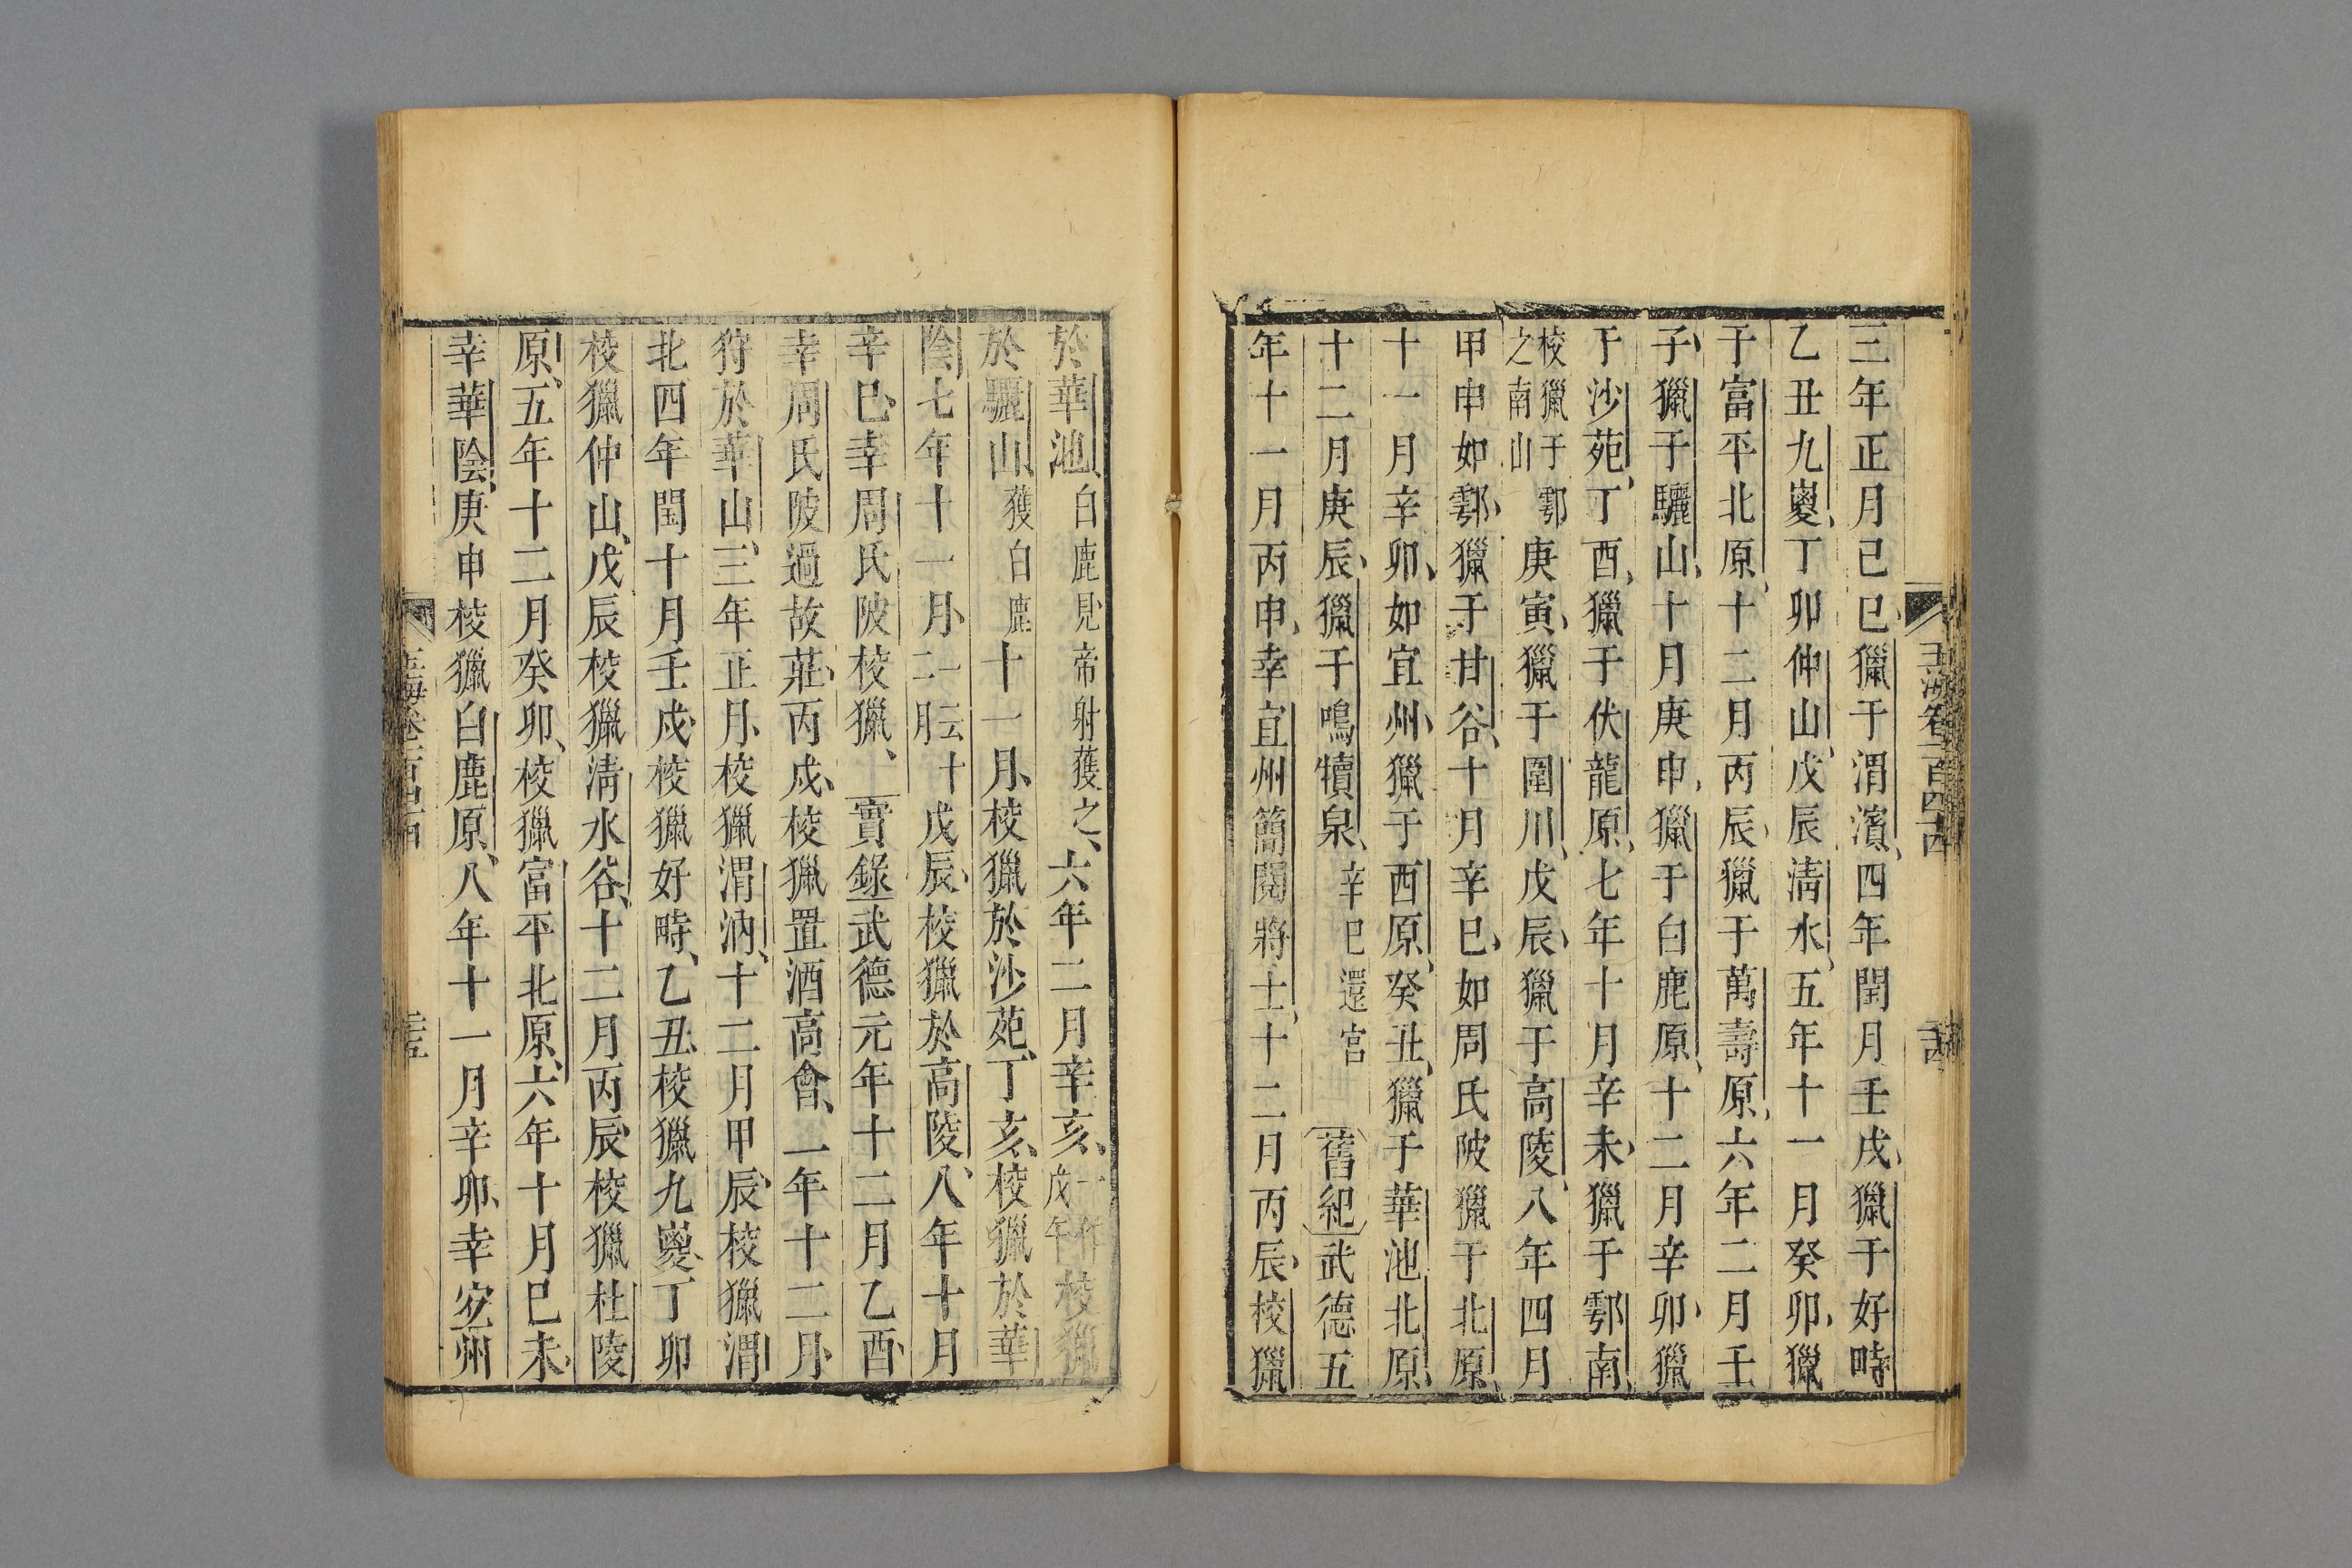 三年正月己巳獵于渭濱四年閏月壬戌獵于好畤
乙丑九嵏丁卯仲山戊辰清水五年十一月癸卯獵
于富平北原十二月丙辰獵于萬壽原六年二月壬
子獵于驪山十月庚申獵于白鹿原十二月辛卯獵
于沙苑丁酉獵于伏龍原七年十月辛未獵于鄠南
校獵于鄠之南山庚寅獵于圍川戊辰獵于高陵八年四月
甲申如鄠獵于甘谷十月辛巳如周氏陂獵于北原
十一月辛卯如宜州獵于西原癸丑獵于華池北原
十二月庚辰獵于鳴犢泉辛巳還宮舊紀武德五
年十一月丙申幸宜州簡閱將士十二月丙辰校獵
玉海卷一百四十四
於華池白鹿見帝射獲之六年二月辛亥一作戊午校獵
於驪山獲白鹿十一月校獵於沙苑丁亥校獵於華
陰七年十一月一云十二月戊辰校獵於高陵八年十月
辛巳幸周氏陂校獵實錄武德元年十二月乙酉
幸周氏陂過故莊丙戌校獵置酒高會二年十二月
狩於華山三年正月校獵渭汭十二月甲辰校獵渭
北四年閏十月壬戌校獵好畤乙丑校獵九嵏丁卯
校獵仲山戊辰校獵清水谷十二月丙辰校獵杜陵
原五年十二月癸卯校獵富平北原六年十月巳未
幸華陰庚申校獵白鹿原八年十一月辛卯幸宜州